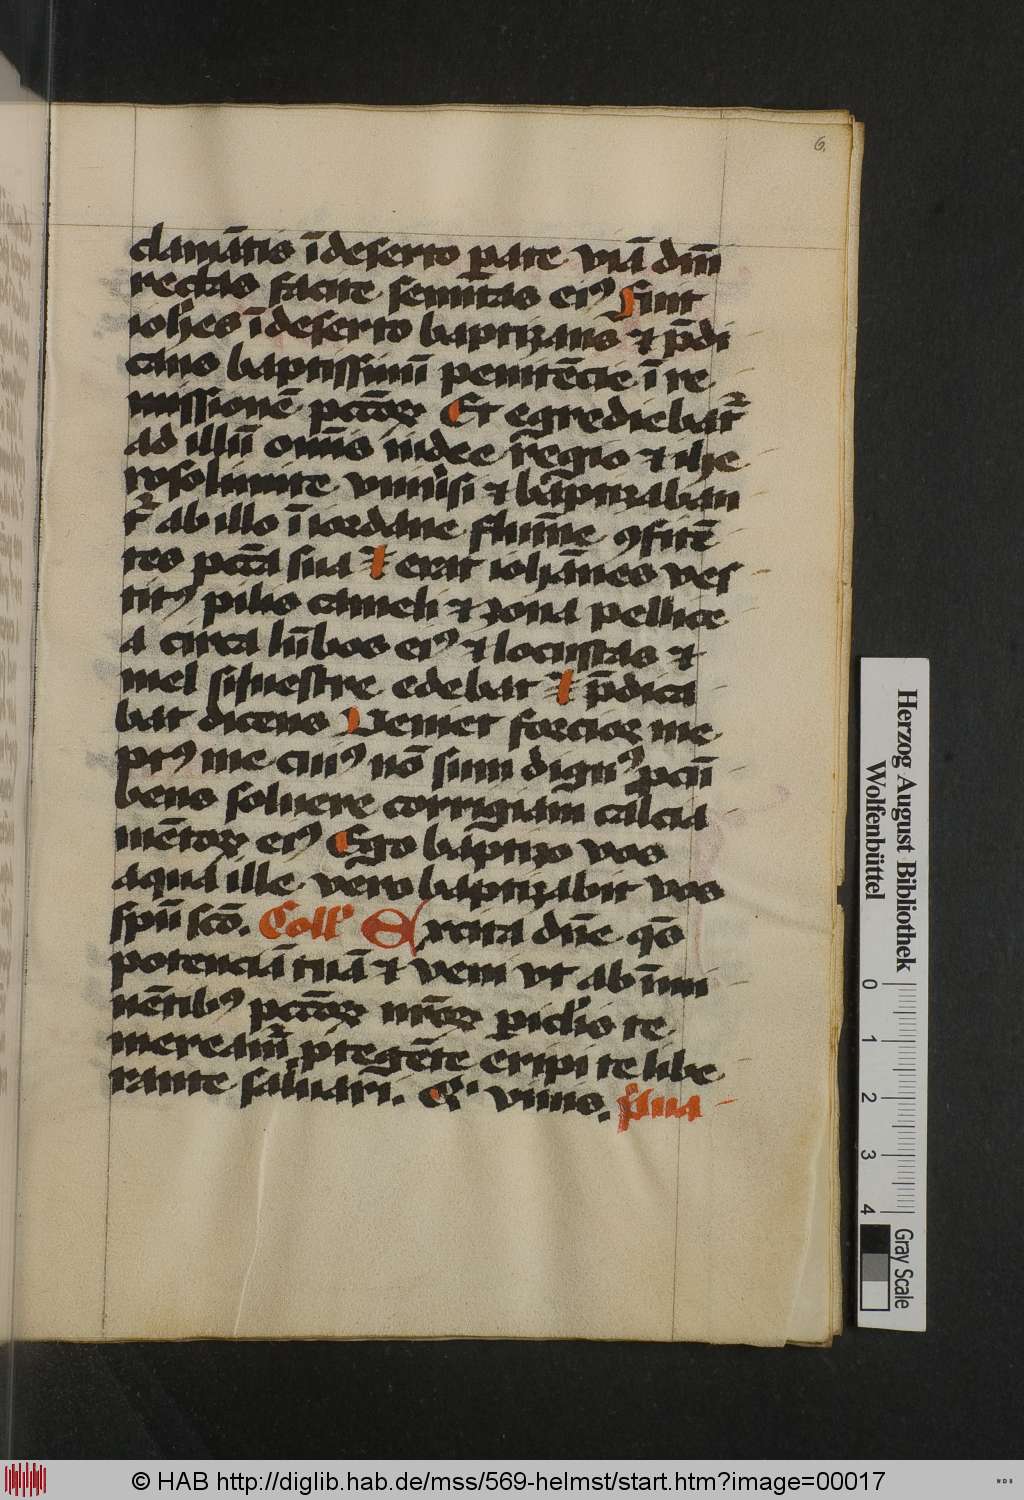 6.
clamātis ī deserto ꝑate viā dn̄i
rectas facite semitas eiꝰ Fuit
ioh̄es ī deserto baptizans ⁊ p̄di
cans baptissimū penitēcie ī re
missionē pctōꝝ Et egrediebat᷑
ad illū om̄is iudee regio ⁊ ihe
rosolimite vniu̾si ⁊ baptizaban
t᷑ ab illo ī iordane flumīe ꝯfitē
tes pctā sua ⁊ erat iohānes ves
titꝰ pilis cameli ⁊ zona pellice
a circa lūbos eiꝰ ⁊ locustas ⁊
mel siluestre edebat ⁊ p̄dica
bat dicens Veniet forcior me
ptꝰ me cuiꝰ nō sum dignꝰ ꝓcū
bens soluere corrigiam calcia
mētoꝝ eiꝰ Ego baptizo vos
aqua ille vero baptizabit vos
spū scō. Coll' Excita dn̄e qs̄
potenciā tuā ⁊ veni vt ab īmi
nētibꝰ pctōꝝ nr̄oꝝ ꝑiclis te
meream᷑ ꝓtegēte eripi te libe
rante saluari. Q' viuis. p̄lua
Herzog August Bibliothek
Wolfenbüttel
0 1 2 3 4
Gray Scale
© HAB http://diglib.hab.de/mss/569-helmst/start.htm?image=00017